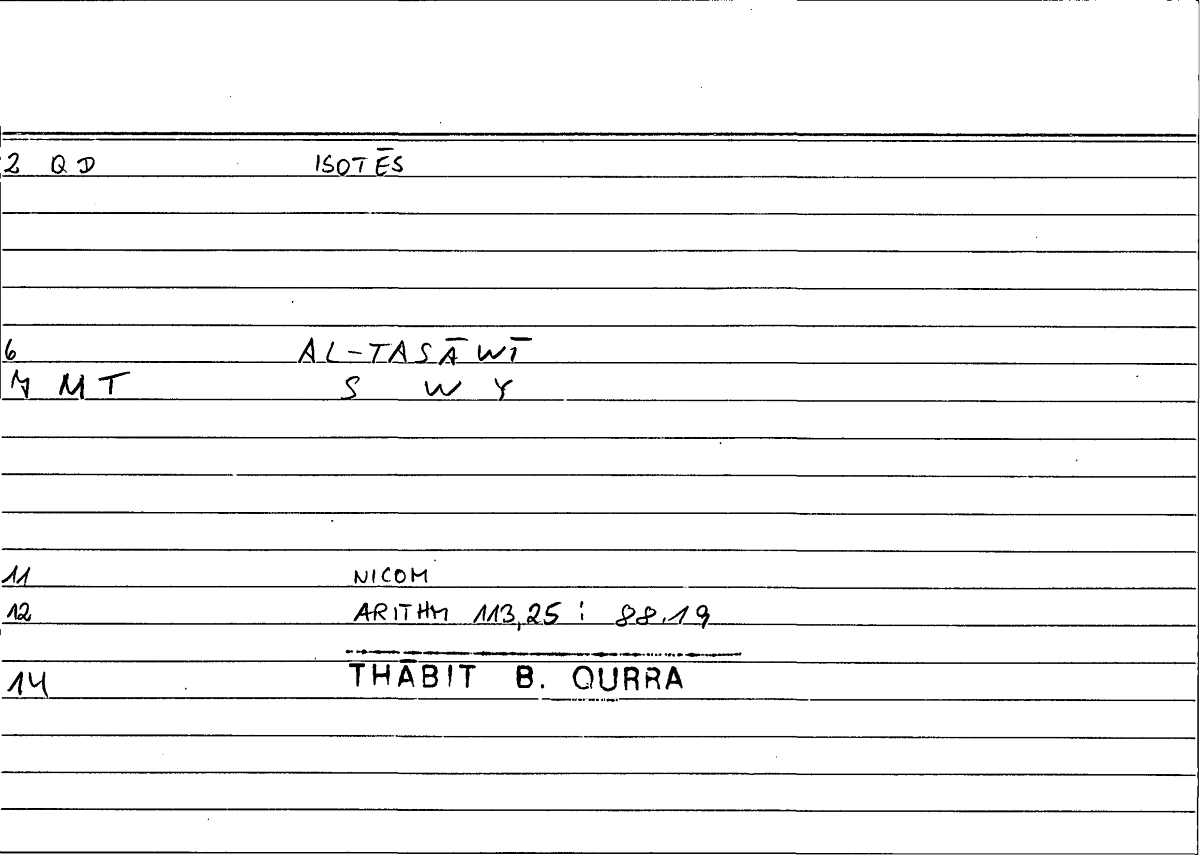 2 QD ISOTĒS
6 AL-TASĀWĪ
7 MT S W Y
11 NICOM
12 ARITHM 113,25 : 88.19
14 THĀBIT B. QURRA